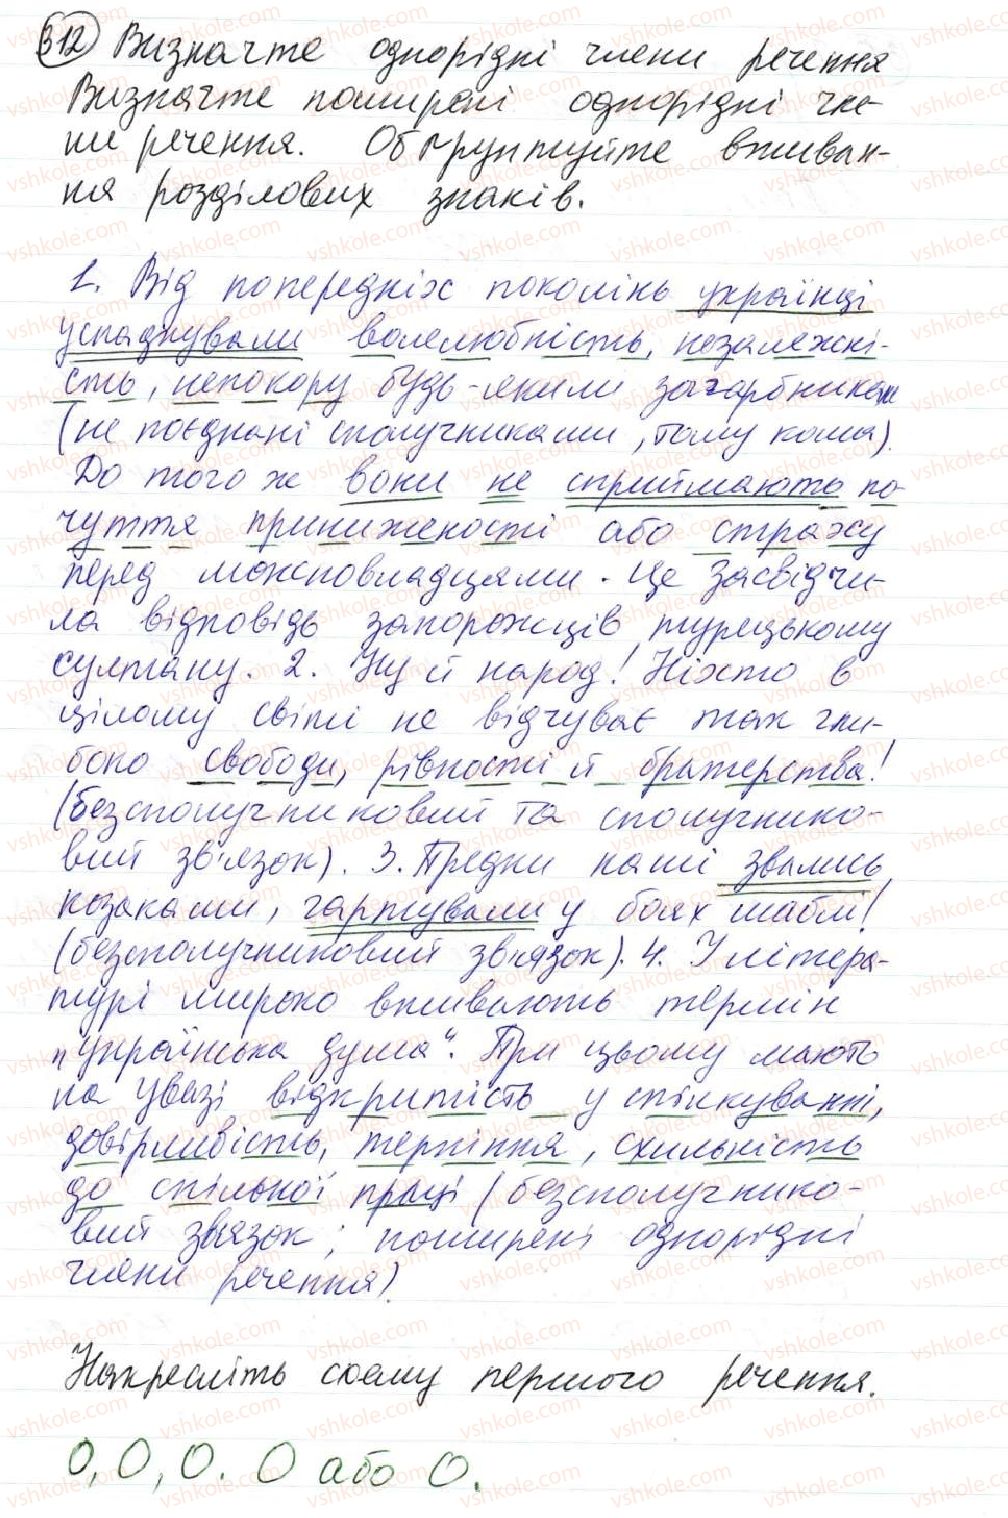 312 Визначте однорідні члени речення
Визначте поширені однорідні чле-
ни речення. Обґрунтуйте вживан-
ня розділових знаків.
1. Від попередніх поколінь українці
успадкували волелюбність, незалежні-
сть, непокору будь-яким загарбникам
(не поєднані сполучниками, тому кома).
До того ж вони не сприймають по-
чуття приниженості або страху
перед можновладцями. Це засвідчи-
ла відповідь запорожців турецькому
султану. 2. Ну й народ! Ніхто в
цілому світі не відчуває так гли-
боко свободи, рівності й братерства!
(безсполучниковий та сполучнико-
вий зв'язок). 3. Предки наші звались
козаками, гартували у боях шаблі!
(безсполучниковий зв'язок). 4. У літера-
турі широко вживають термін
„українська душа". При цьому мають
на увазі відкритість у спілкуванні,
довірливість, терпіння, схильність
до спільної праці (безсполучнико-
вий звязок; поширені однорідні
члени речення).
Накресліть схему першого речення.
О, О, О. О або О.